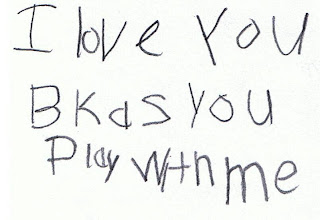 I love You
BKas you
Play with me